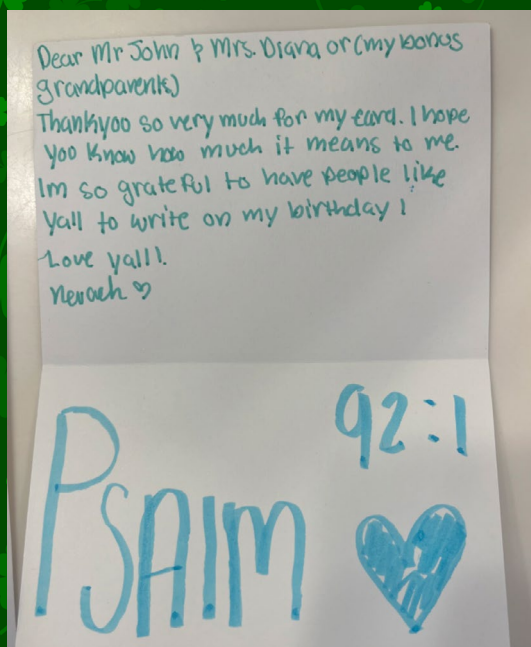 Dear Mr John & Mrs. Diana or (my bonus
grandparents)
Thankyoo so very much for my card. I hope
yoo know how much it means to me.
Im so grateful to have people like
yall to write on my birthday!
Love yall!.
Nevaeh ♡
92:1
PSAlm